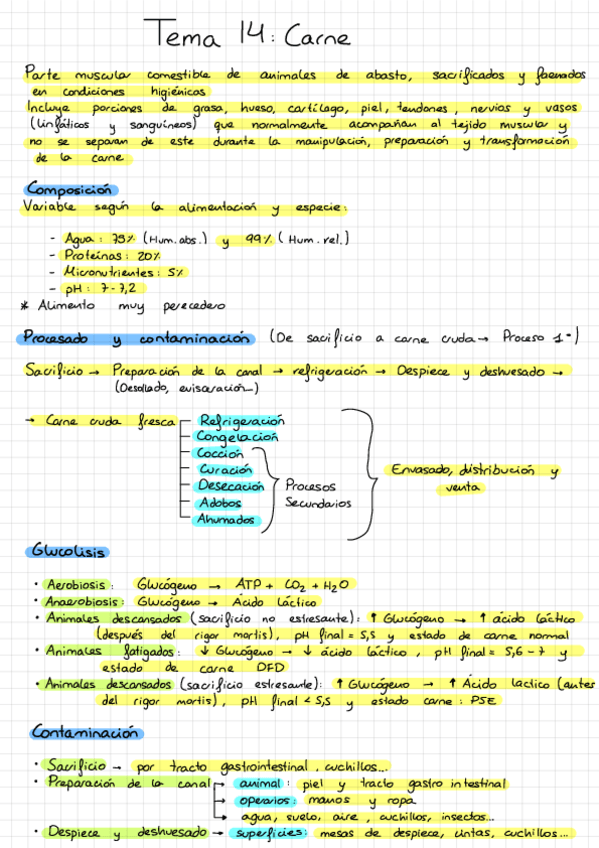 Tema 14: Carne
Parte muscular comestible de animales de abasto, sacrificados y faenados
en condiciones higiénicas
Incluye porciones de grasa, hueso, cartílago, piel, tendones, nervios y vasos
(linfáticos y sanguíneos) que normalmente acompañan al tejido muscular y
no se separan de este durante la manipulación, preparación y transformación
de la carne
Composición
Variable según la alimentación y especie:
- Agua: 75% (Hum. abs.) y 99% (Hum. rel.)
- Proteínas: 20%
- Micronutrientes: 5%
- pH: 7-7,2
* Alimento muy perecedero
Procesado y contaminación (De sacrificio a carne cruda → Proceso 1º)
Sacrificio → Preparación de la canal → refrigeración → Despiece y deshuesado →
(Desollado, evisceración...)
→ Carne cruda fresca
Refrigeración
Congelación
Cocción
Curación
Desecación
Adobos
Ahumados
Procesos
Secundarios
Envasado, distribución y
venta
Glucolisis
• Aerobiosis: Glucógeno → ATP + CO2 + H2O
• Anaerobiosis: Glucógeno → Ácido láctico
• Animales descansados (sacrificio no estresante): ↑ Glucógeno → ↑ ácido láctico
(después del rigor mortis), pH final = 5,5 y estado de carne normal
• Animales fatigados: ↓ Glucógeno → ↓ ácido láctico, pH final = 5,6-7 y
estado de carne DFD
• Animales descansados (sacrificio estresante): ↑ Glucógeno → ↑ Ácido lactico (antes
del rigor mortis), pH final < 5,5 y estado carne: PSE
Contaminación
• Sacrificio → por tracto gastrointestinal, cuchillos...
• Preparación de la canal → animal: piel y tracto gastrointestinal
→ operarios: manos y ropa
→ agua, suelo, aire, cuchillos, insectos...
• Despiece y deshuesado → superficies: mesas de despiece, cintas, cuchillos...